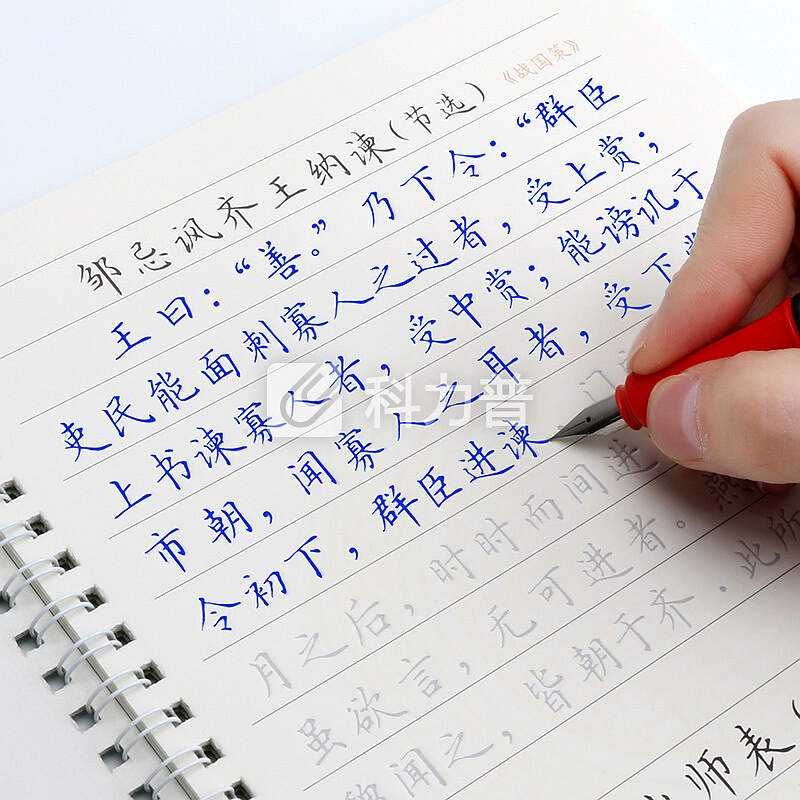 《战国策》
邹忌讽齐王纳谏(节选)
王曰：“善。”乃下令：“群臣
吏民能面刺寡人之过者，受上赏；
上书谏寡人者，受中赏；能谤讥于
市朝，闻寡人之耳者，受下赏
令初下，群臣进谏，门
月之后，时时而间进
虽欲言，无可进者。燕
魏闻之，皆朝于齐．此所
师表(
科力普